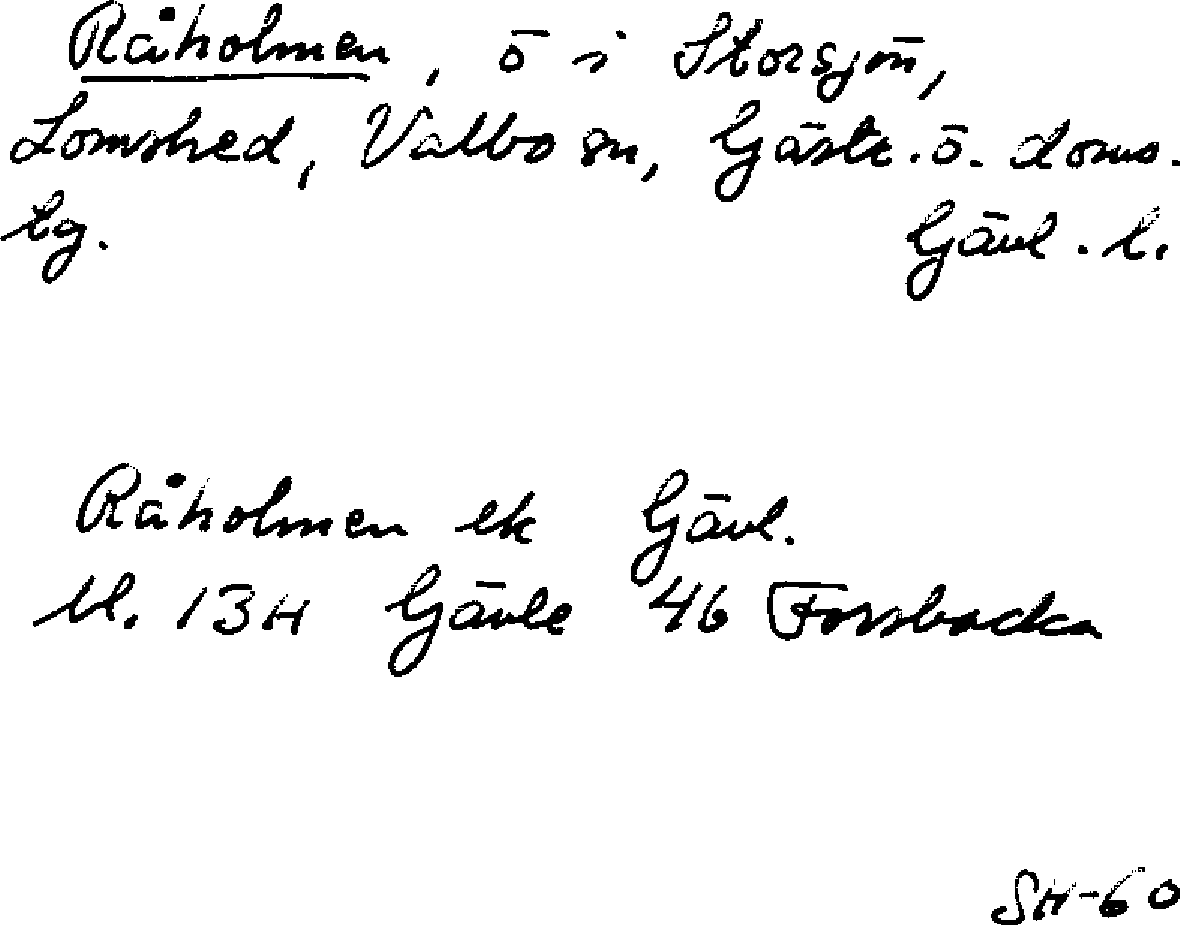 Råholmen, ö i Storsjön,
Lomshed, Valbo sn, Gästr. ö. doms.
tg. Gävl. l.
Råholmen ek Gävl.
bl. 13H Gävle 46 Forsbacka
SH-60